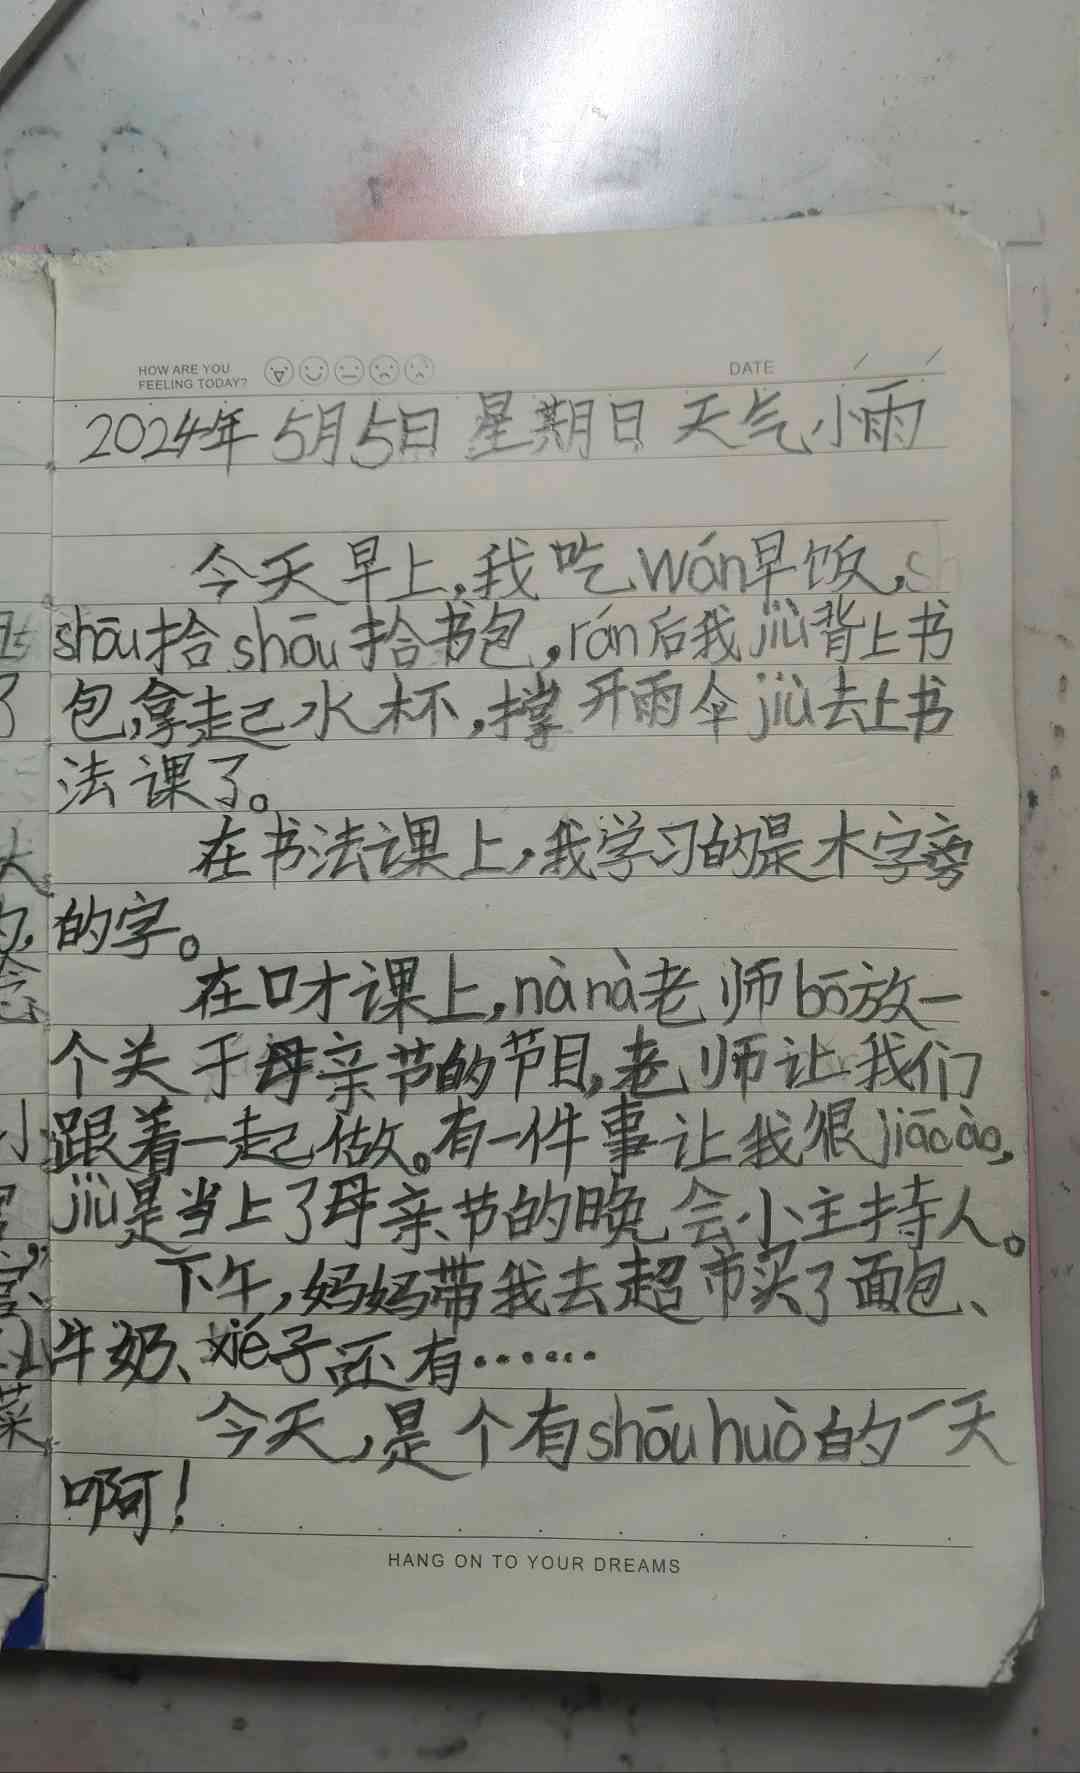 HOW ARE YOU
FEELING TODAY?
DATE
2024年5月5日 星期日 天气小雨
今天早上,我吃wán早饭,
shōu拾shōu拾书包,rán后我jiù背上书
包,拿起水杯,撑开雨伞jiù去上书
法课了。
在书法课上,我学习的是木字旁
的字。
在口才课上,nànà老师bō放一
个关于母亲节的节目,老师让我们
跟着一起做。有一件事让我很jiāoào,
jiù是当上了母亲节的晚会小主持人。
下午,妈妈带我去超市买了面包、
牛奶、xié子还有……
今天,是个有shōuhuò的一天
啊!
HANG ON TO YOUR DREAMS